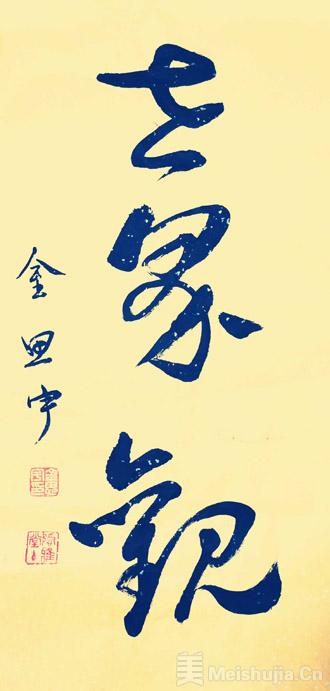 世界觀
金思宇
美 Meishujia.Cn